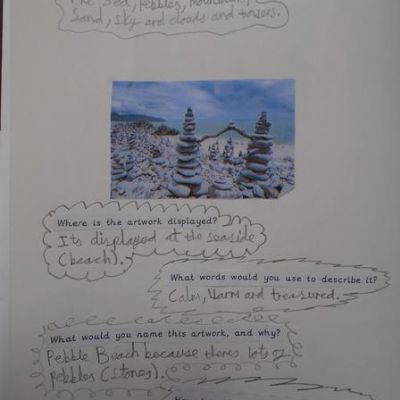 The Sea, pebbles, mountains,
Sand, sky and clouds and towers.
Where is the artwork displayed?
Its displayed at the seaside
(beach).
What words would you use to describe it?
Calm, Warm and treasured.
What would you name this artwork, and why?
Pebble Beach because theres lots of
pebbles (stones).